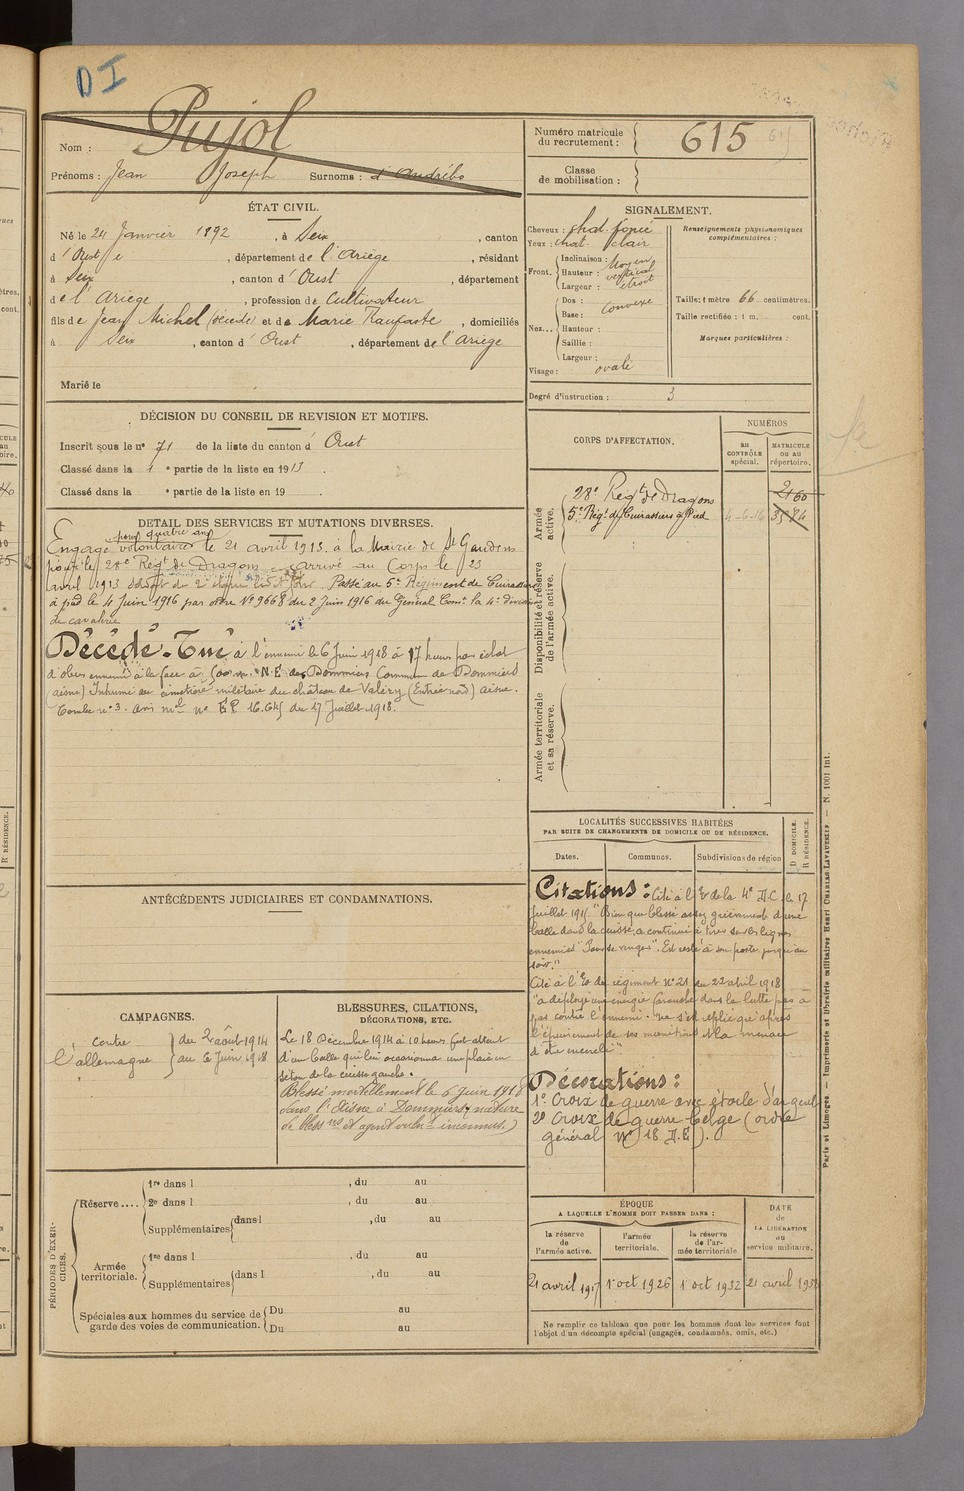 DI
Nom : Pujol
Prénoms : Jean Joseph Surnoms : d'Andrébo
Numéro matricule
du recrutement : 615
Classe
de mobilisation :
ÉTAT CIVIL.
Né le 24 Janvier 1892, à Seix, canton
d'Oust, département de l'Ariège, résidant
à Seix, canton d'Oust, département
de l'Ariège, profession de Cultivateur
fils de Jean Michel (décédé) et de Marie Raufaste, domiciliés
à Seix, canton d'Oust, département de l'Ariège
Marié le
SIGNALEMENT.
Cheveux : chat. foncé
Yeux : chat. clair
Front. Inclinaison : Moyen
Hauteur : vertical
Largeur : étroit
Nez... Dos : convexe
Base :
Hauteur :
Saillie :
Largeur :
Visage : ovale
Renseignements physionomiques
complémentaires :
Taille : 1 mètre 66 centimètres.
Taille rectifiée : 1 m. cent.
Marques particulières :
Degré d'instruction : 3
DÉCISION DU CONSEIL DE REVISION ET MOTIFS.
Inscrit sous le n° 71 de la liste du canton d'Oust
Classé dans la 1e partie de la liste en 1913.
Classé dans la e partie de la liste en 19 .
CORPS D'AFFECTATION.
NUMÉROS
au
CONTRÔLE
spécial.
MATRICULE
ou au
répertoire.
Armée
active.
28e Regt de Dragons 2160
5e Rég. de Cuirassiers à Pied 4-6-16 3584
Disponibilité et réserve
de l'armée active.
Armée territoriale
et sa réserve.
DÉTAIL DES SERVICES ET MUTATIONS DIVERSES.
pour quatre ans
Engagé volontaire le 21 avril 1913. à la Mairie de St Gaudens
pour le 28e Regt de Dragons arrivé au Corps le 23
avril 1913 soldat de 2e classe dit jour. Passé au 5e Régiment de Cuirassiers
à pied le 4 Juin 1916 par ordre N° 9668 du 2 Juin 1916 du Général Comt la 4e division
de cavalerie
Décédé - Tué à l'ennemi le 6 Juin 1918 à 17 heures par éclat
d'obus ennemi à la face à 500 m. N.E de Dommiers Commune de Dommiers
(aisne) Inhumé au cimetière militaire du château de Valéry (Entrée nord) aisne.
Tombe n° 3. Avis ml n° EP. 16.645 du 17 Juillet 1918.
LOCALITÉS SUCCESSIVES HABITÉES
PAR SUITE DE CHANGEMENTS DE DOMICILE OU DE RÉSIDENCE.
Dates.
Communes.
Subdivisions de région
D DOMICILE.
R RÉSIDENCE.
Citations : Cité à l'O de la 4e D.C. le 17
Juillet 1915. "Bien que blessé assez grièvement d'une
balle dans la cuisse, a continué à tirer sur les lignes
ennemies . Est resté à son poste jusqu'au
soir."
Cité à l'O du régiment N° 21 du 22 avril 1918
"a déployé une énergie farouche dans la lutte pas à
pas contre l'ennemi. ne s'est replié qu'après
l'épuisement de ses munitions et la menace
d'être encerclé".
Décorations :
1° Croix de guerre avec étoile d'argent
2° Croix de guerre belge (ordre
général N° 18 D.E).
ANTÉCÉDENTS JUDICIAIRES ET CONDAMNATIONS.
CAMPAGNES.
contre
l'allemagne
du 2 août 1914
au 6 Juin 1918
BLESSURES, CITATIONS,
DÉCORATIONS, ETC.
Le 18 Décembre 1914 à 10 heures fut atteint
d'une balle qui lui occasionna une plaie en
séton de la cuisse gauche.
Blessé mortellement le 6 Juin 1918
dans l'Aisne à Dommiers (nature
de blessres et agent vulnt inconnus)
PÉRIODES D'EXER-
CICES.
Réserve....
1re dans l , du au
2e dans l , du au
Supplémentaires dans l , du au
Armée
territoriale.
1re dans l , du au
Supplémentaires dans l , du au
Spéciales aux hommes du service de
garde des voies de communication.
Du au
Du au
ÉPOQUE
A LAQUELLE L'HOMME DOIT PASSER DANS :
la réserve
de
l'armée active.
l'armée
territoriale.
la réserve
de l'ar-
mée territoriale
DATE
de
LA LIBÉRATION
du
service militaire.
21 avril 1917
1 oct 1926
1 oct 1932
21 avril 193
Ne remplir ce tableau que pour les hommes dont les services font
l'objet d'un décompte spécial (engagés, condamnés, omis, etc.)
Paris et Limoges. — Imprimerie et librairie militaires Henri CHARLES-LAVAUZELLE. — N. 1001 Int.